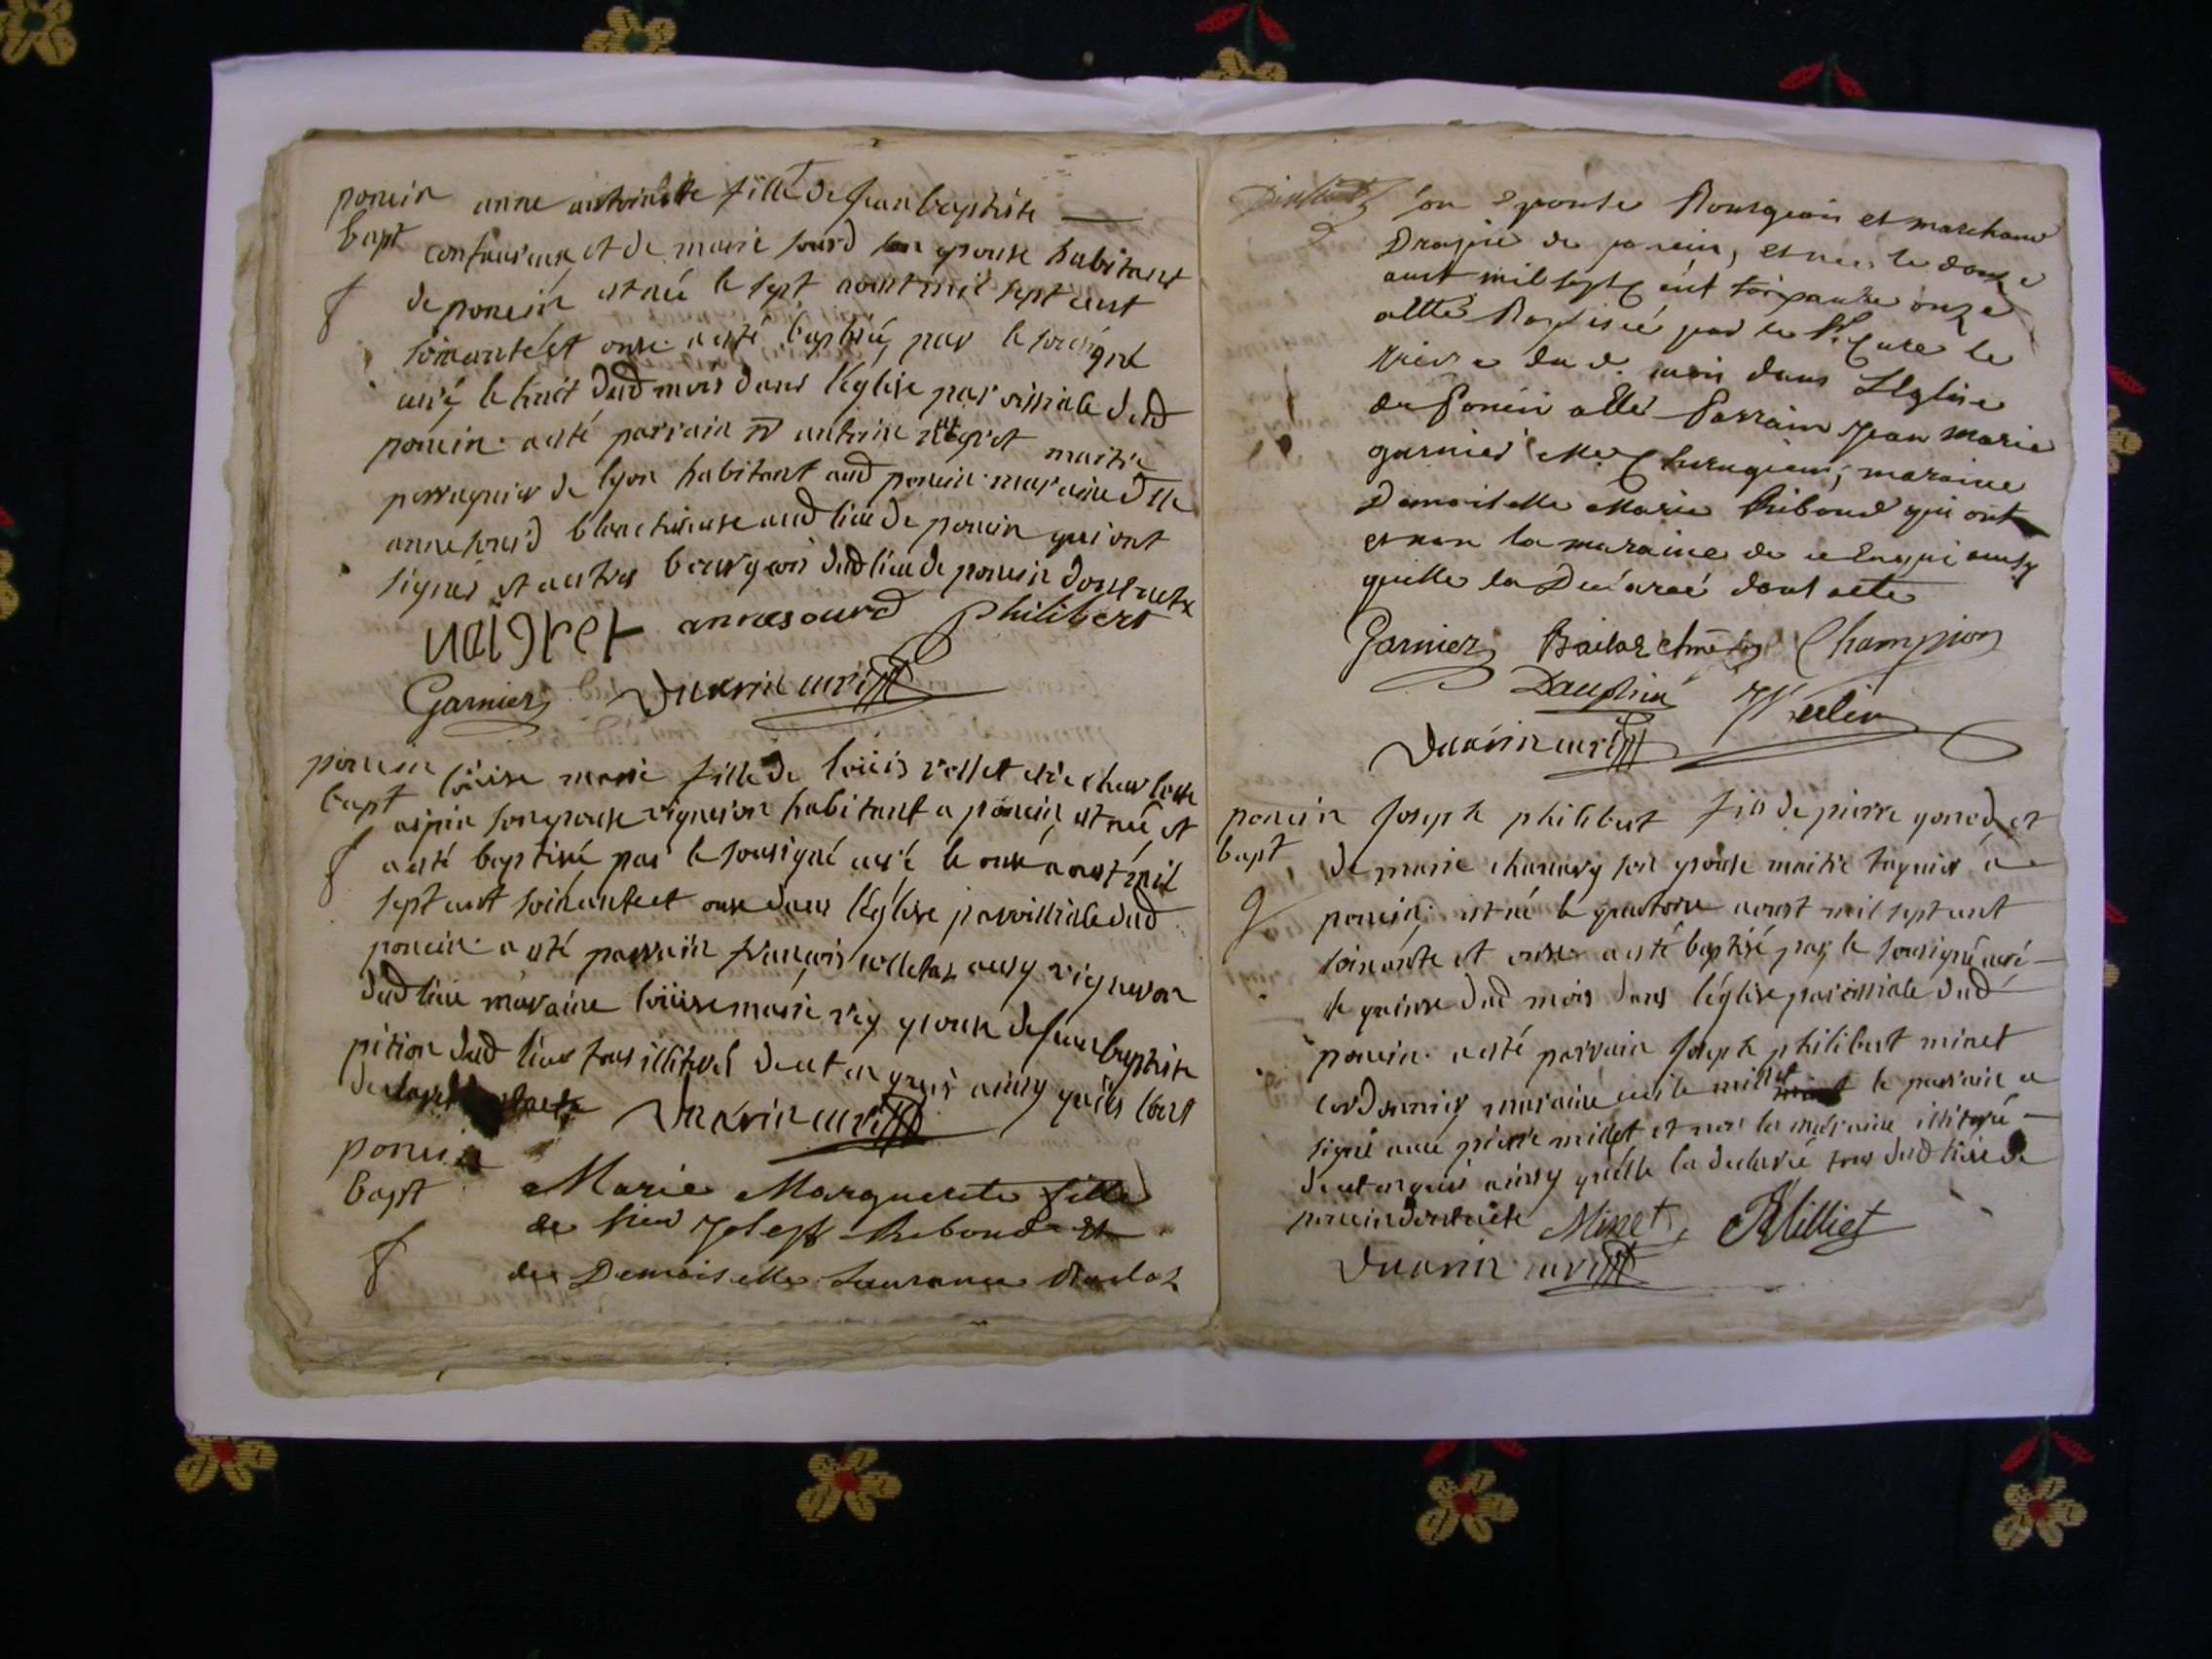 poncin anne antoinette fille de Jean baptiste
bapt et de marie sourd son epouse habitant
f de poncin est née le sept aoust mil sept cent
soixante et onse a esté baptisée par le sousigné
curé le huit dud mois dans l'église parroissiale dud
poncin. a esté parrain sr antoine maitre
perruquier de lyon habitant aud poncin. maraine dlle
anne sourd blanchiseuse aud lieu de poncin qui ont
signés et autres bourgeois dud lieu de poncin dont acte
naigret anne sourd Philibert
Garnier curé
poncin loüise marie fille de loüis vollet et de charlotte
bapt son epouse vigneron habitant a poncin, est née et
f a esté baptisée par le sousigné curé le onse aoust mil
sept cent soixante et onse dans l'église parroissiale dud
poncin. a esté parrain françois aussy vigneron
dud lieu maraine loüise marie rey epouse de Jean baptiste
pition dud lieu tous illiterés de ce enquis ainsy qu'ils l'ont
curé
poncin
bapt Marie Marguerite fille
de sieur Joseph Riboud et
f de Demoiselle Laurance
son Epouse Bourgeois et marchand
Drapié de poncin, est née le douze
aust mil sept cent soixante onze
a etté Baptiseé par le Sr Curé le
treize du d. mois dans L'Eglise
de Poncin a etté Parrain Jean Marie
garnier Me Chirugien; maraine
Demoiselle Marie Riboud qui ont
et non la maraine de ce Enquis ainsy
quelle la Declareé dont acte
Garnier Champion
Dauphin
curé
poncin Joseph philibert fils de pierre gonod et
bapt de marie son epouse maitre a
poncin; est né le quatorse aoust mil sept cent
soixante et onse a esté baptisé par le sousigné curé
le quinse dud mois dans l'église paroissiale dud
poncin. a esté parrain Joseph philibert minet
cordonnier maraine millet le parrain a
signé avec pierre millet et non la maraine illiterée
de ce enquis ainsy qu'elle la declaré tous dud lieu de
poncin dont acte Minet, Milliet
curé